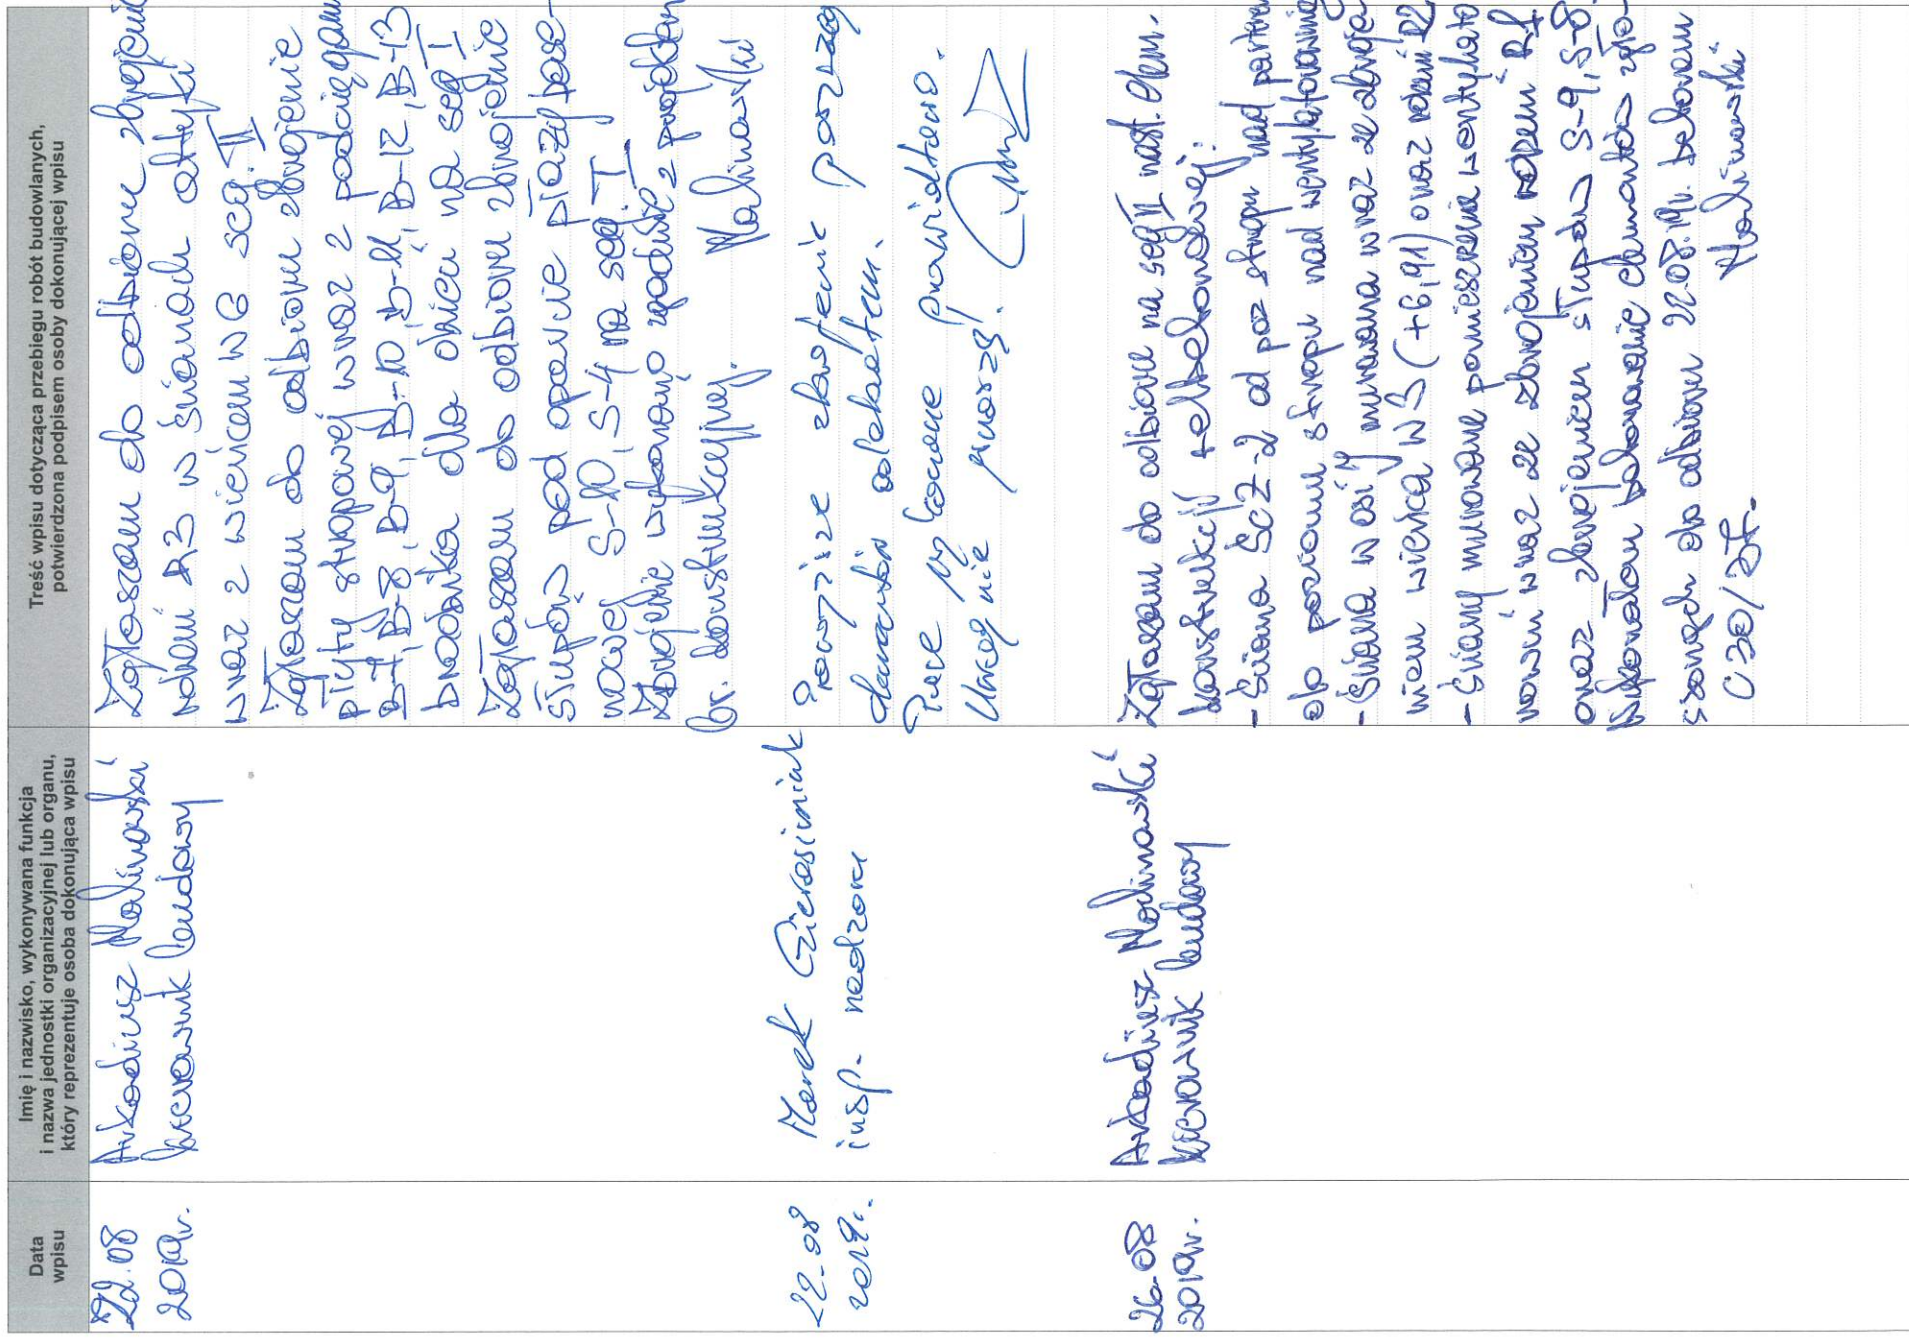 Data
wpisu
Imię i nazwisko, wykonywana funkcja
i nazwa jednostki organizacyjnej lub organu,
który reprezentuje osoba dokonująca wpisu
Treść wpisu dotycząca przebiegu robót budowlanych,
potwierdzona podpisem osoby dokonującej wpisu
22.08
2019r.
Arkadiusz Malinowski
kierownik budowy
Zgłaszam do odbioru zbrojenie
rdzeni R3 w ścianach attyki
wraz z wieńcem W6 seg. II
Zgłaszam do odbioru zbrojenie
płyty stropowej wraz z podciągami
B-7, B-8, B-9, B-10, B-11, B-12, B-13
dla na seg I
Zgłaszam do odbioru zbrojenie
słupów pod oparcie płazy base-
nowej S-10, S-4 na seg. I
Zbrojenie wykonano zgodnie z projektem
br. konstrukcyjnej. Malinowski
22-08
2019r.
Marek Gierasimiuk
insp. nadzoru
Powyższe zbrojenie
elementów odebrałem.
Prace wykonane prawidłowo.
26-08
2019r.
Arkadiusz Malinowski
kierownik budowy
Zgłaszam do odbioru na seg II nast. elem.
konstrukcji żelbetowej:
- Ściana SCZ-2 od poz stropu nad
do poziomu stropu nad wentylatorownią
- Ściana w osi murowana wraz ze zbroje-
niem wieńca W3 (+6,91) oraz rdzeni R2
- Ściany murowane pomieszczenia wentylato-
rowni wraz ze zbrojeniem rdzeni R1
oraz zbrojeniem słupów S-9, S-8
Wykonałem betonowanie elementów zgło-
szonych do odbioru 22.08.19r. betonem
C30/37. Malinowski